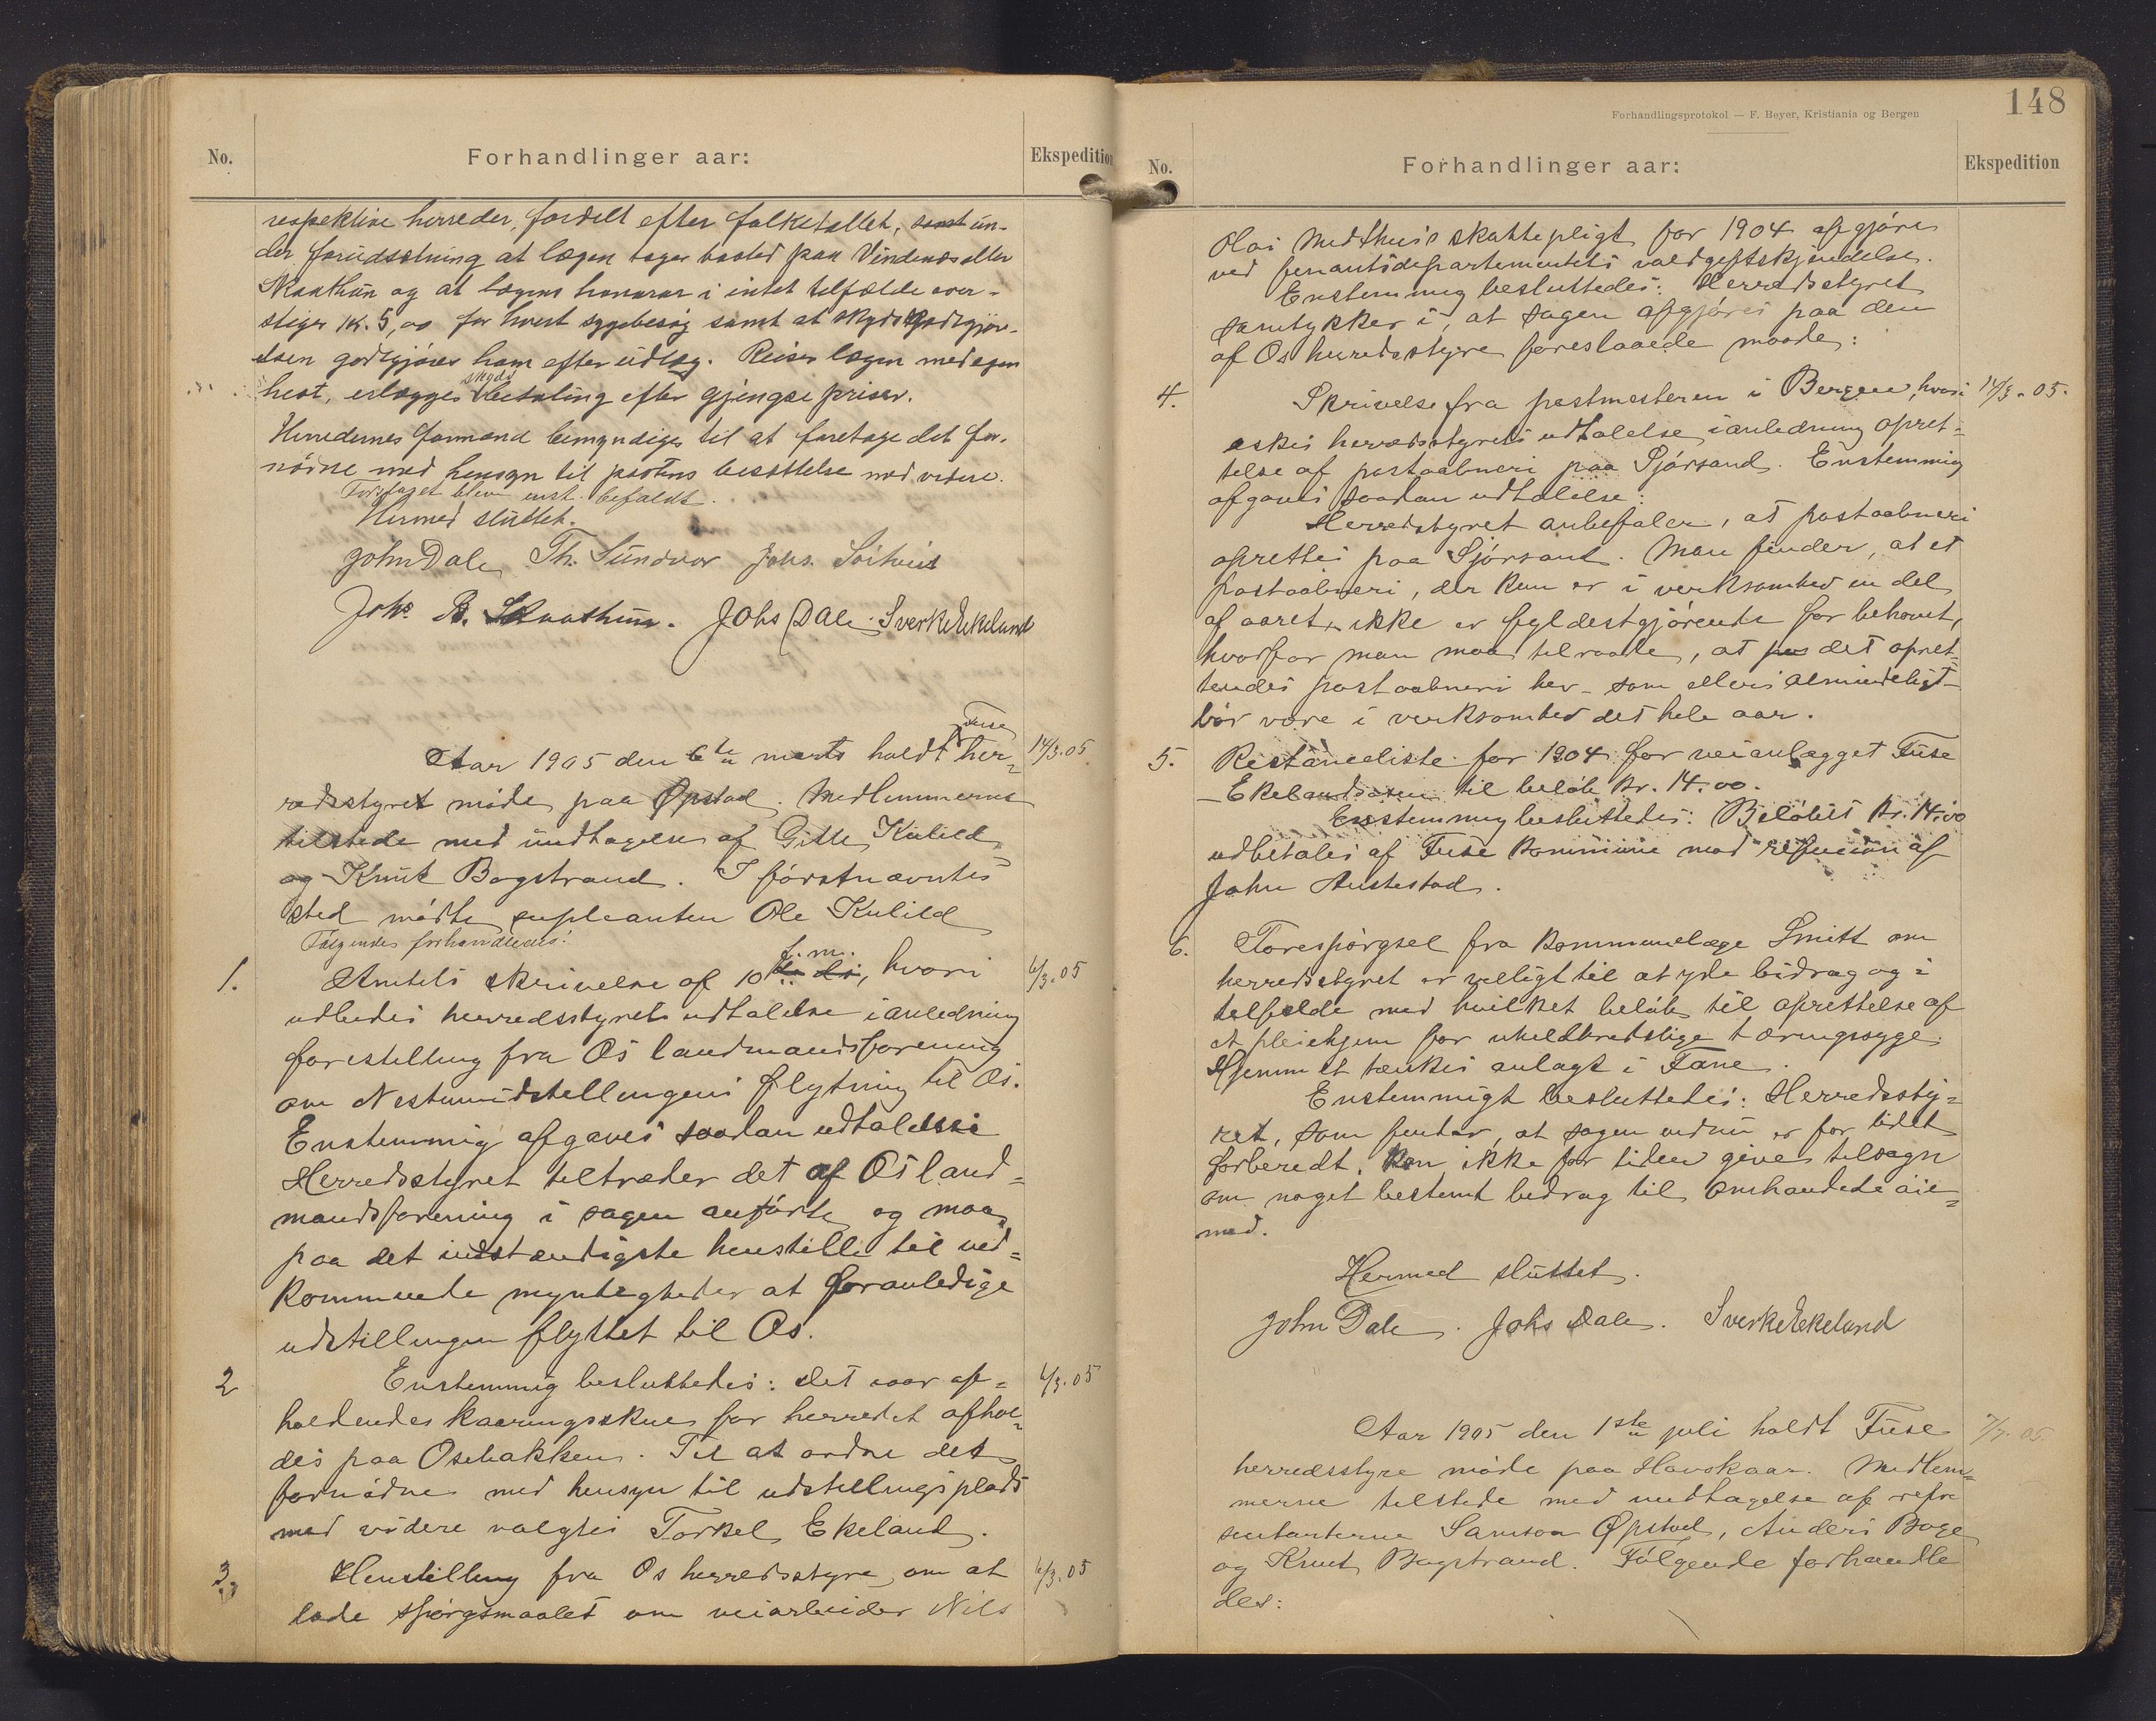 No.
Forhandlinger aar:
Ekspedition
respektive herreder, fordelt efter folketallet, samt un-
der forudsætning at lægen tager bosted paa Vindenes eller
Skaathun og at lægens honorar i intet tilfælde over-
stiger K. 5,00 for hvert sygebesøg samt at skydsgodtgjør-
elsen godtgjøres ham efter udlæg. Reiser lægen med egen
hest, erlægges skydsbetaling efter gjengse priser.
Herredernes formænd bemyndiges til at foretage det for-
nødne med hensyn til postens besættelse med videre.
Forslaget blev enst. befaldt.
Hermed sluttet.
John Dale Th. Sundvor Johs. Soltveit
Johs B. Skaathun. Johs Dale. Sverke Ekeland
Aar 1905 den 6te marts holdt Fuse her- 14/3.05
redsstyret møde paa Øpstad. Medlemmerne
tilstede med undtagelse af Gitle Kulild
og Knut Bogstrand. I førstnævntes
sted mødte supleanten Ole Kulild
Følgende forhandledes:
1. Amtets skrivelse af 10 f.m., hvori 6/3.05
udbedes herredsstyrets udtalelse i anledning
forestilling fra Os landmandsforening
om Nestunudstellingens flytning til Os.
Enstemmig afgaves saadan udtalelse
Herredsstyret tiltræder det af Os land-
mandsforening i sagen anførte og maa
paa det indstændigste henstille til ved-
kommende myndigheder at foranledige
udstillingen flyttet til Os.
2 Enstemmig besluttedes: Det iaar af- 6/3.05
holdendes kaaringsskue for herredet afhol-
des paa Osebakken. Til at ordne det
fornødne med hensyn til udstellingsplads
med videre valgtes Torkel Ekeland.
3. Henstilling fra Os herredsstyre om at 6/3.05
lade spørgsmaalet om veiarbeider Nils
148
Forhandlingsprotokol — F. Beyer, Kristiania og Bergen
No.
Forhandlinger aar:
Ekspedition
Olai Midthuis skattepligt for 1904 afgjøres
ved finantsdepartementets voldgiftskjendelse.
Enstemmig besluttedes: Herredsstyret
samtykker i, at sagen afgjøres paa den
af Os herredsstyre foreslaaede maade:
4. Skrivelse fra postmesteren i Bergen, hvori 14/3.05.
æskes herredsstyrets udtalelse i anledning opret-
telse af postaabneri paa Sjørsand. Enstemmig
afgaves saadan udtalelse:
Herredstyret anbefaler, at postaabneri
oprettes paa Sjørsand. Man finder, at et
postaabneri, der kun er i verksomhed en del
af aaret, ikke er fyldestgjørende for behovet,
hvorfor man maa tilraade, at det opret-
tendes postaabneri her – som ellers almindeligt –
bør være i verksomhed det hele aar.
5. Restanceliste for 1904 for veianlægget Fuse
– Ekelandsosen til beløb Kr. 14.00.
Enstemmig besluttedes: Beløbet Kr. 14.00
udbetales af Fuse kommune mod refusion af
John Austestad.
6. Forespørgsel fra kommunelæge Smitt om
herredsstyret er velligt til at yde bidrag og i
tilfælde med hvilket beløb til oprettelse af
et pleiehjem for uhelbredelige tæringssyge.
Hjemmet tænkes anlagt i Fane.
Enstemmigt besluttedes: Herredssty-
ret, som finder, at sagen endnu er for lidet
forberedt, kan ikke for tiden give tilsagn
om noget bestemt bidrag til omhandlede øie-
med.
Hermed sluttet.
John Dale. Johs Dale. Sverke Ekeland
Aar 1905 den 1ste juli holdt Fuse 7/7.05.
herredsstyre møde paa Havskaar. Medlem-
merne tilstede med undtagelse af repre
sentanterne Samson Øpstad, Anders Boge
og Knut Bogstrand. Følgende forhandle
des: